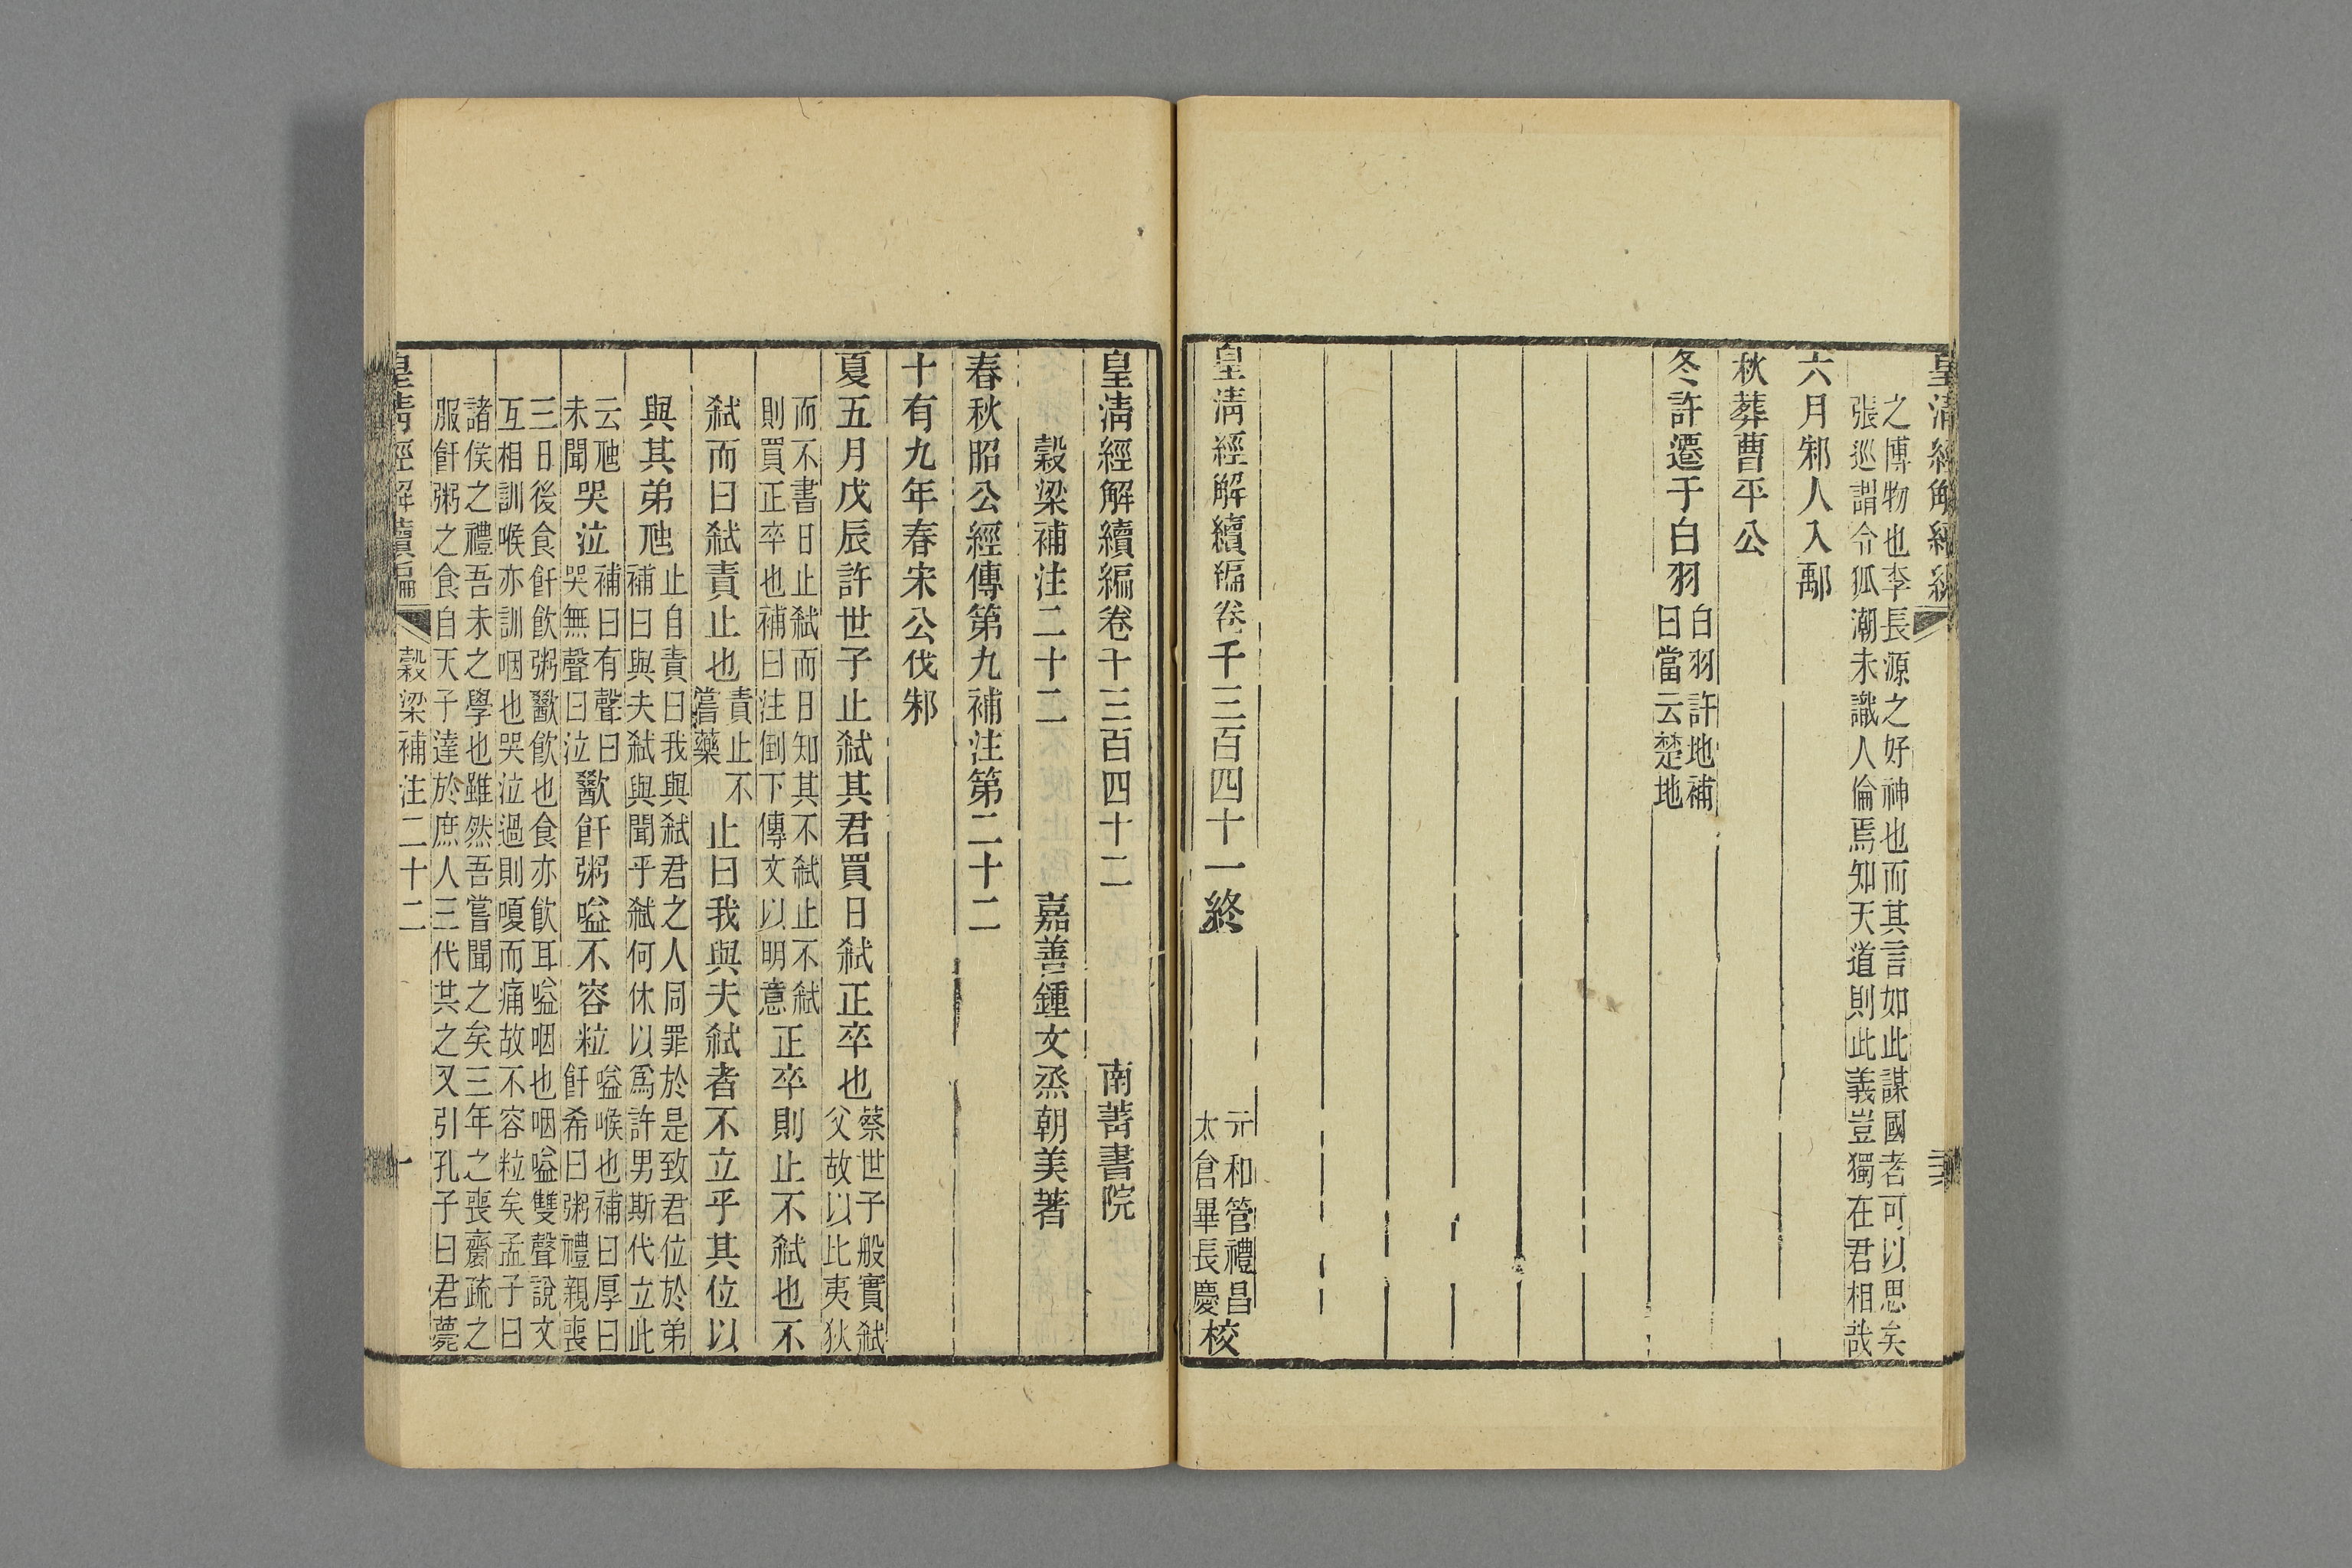 皇清經解續編
之博物也李長源之好神也而其言如此謀國者可以思矣
張巡謂令狐潮未識人倫焉知天道則此義豈獨在君相哉
六月邾人入鄅
秋葬曹平公
冬許遷于白羽
白羽許地補
曰當云楚地
皇清經解續編卷千三百四十一終
元和管禮昌
太倉畢長慶
校
皇清經解續編卷千三百四十二
南菁書院
穀梁補注二十二
嘉善鍾文烝朝美著
春秋昭公經傳第九補注第二十二
十有九年春宋公伐邾
夏五月戊辰許世子止弒其君買日弒正卒也
蔡世子般實弒
父故以比夷狄
而不書日止弒而日知其不弒止不弒
則買正卒也補曰注倒下傳文以明意
正卒則止不弒也不
弒而曰弒責止也
責止不
嘗藥
止曰我與夫弒者不立乎其位以
與其弟虺
止自責曰我與弒君之人同罪於是致君位於弟
補曰與夫弒與聞乎弒何休以爲許男斯代立此
云虺
未聞
哭泣
補曰有聲曰
哭無聲曰泣
歠飦粥嗌不容粒
嗌喉也補曰厚曰
飦希曰粥禮親喪
三日後食飦飲粥歠飲也食亦飲耳嗌咽也咽嗌雙聲說文
互相訓喉亦訓咽也哭泣過則嗄而痛故不容粒矣孟子曰
諸侯之禮吾未之學也雖然吾嘗聞之矣三年之喪齊疏之
服飦粥之食自天子達於庶人三代共之又引孔子曰君薨
皇清經解續編
穀梁補注二十二
一